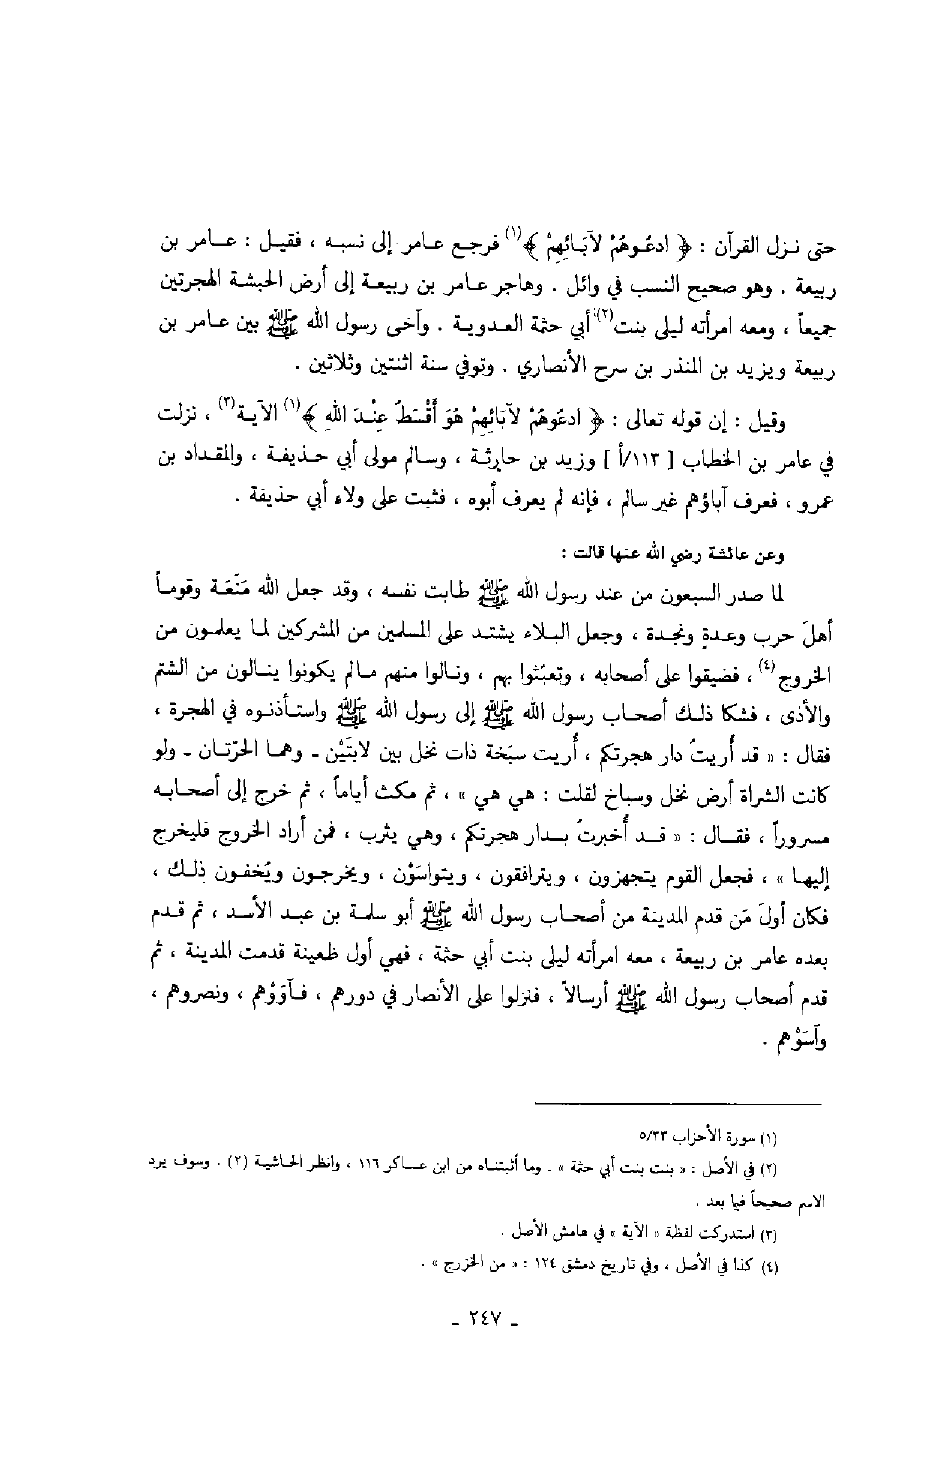 حتى نزل القرآن : ﴿ ادعُوهُمْ لآبَائِهِمْ ﴾(١) فرجع عامر إلى نسبه ، فقيل : عامر بن
ربيعة . وهو صحيح النسب في وائل . وهاجر عامر بن ربيعة إلى أرض الحبشة الهجرتين
جميعاً ، ومعه امرأته ليلى بنت(٢) أبي حثمة العدوية . وآخى رسول الله ﷺ بين عامر بن
ربيعة ويزيد بن المنذر بن سرح الأنصاري . وتوفي سنة اثنتين وثلاثين .
وقيل : إن قوله تعالى : ﴿ ادعُوهُمْ لآبَائِهِمْ هُوَ أَقْسَطُ عِنْدَ اللهِ ﴾(١) الآية(٣) ، نزلت
في عامر بن الخطاب [ ١١٣/أ ] وزيد بن حارثة ، وسالم مولى أبي حذيفة ، والمقداد بن
عمرو ، فعرف آباؤهم غير سالم ، فإنه لم يعرف أبوه ، فثبت على ولاء أبي حذيفة .
وعن عائشة رضي الله عنها قالت :
لما صدر السبعون من عند رسول الله ﷺ طابت نفسه ، وقد جعل الله مَنَعَة وقوماً
أهلَ حرب وعدةٍ ونجدة ، وجعل البلاء يشتد على المسلمين من المشركين لما يعلمون من
الخروج(٤) ، فضيقوا على أصحابه ، وتعبّثوا بهم ، ونالوا منهم مالم يكونوا ينالون من الشتم
والأذى ، فشكا ذلك أصحاب رسول الله ﷺ إلى رسول الله ﷺ واستأذنوه في الهجرة ،
فقال : « قد أُريتُ دار هجرتكم ، أُريت سبَخة ذات نخل بين لابَتَيْن ـ وهما الحَرّتان ـ ولو
كانت الشراة أرض نخل وسباخ لقلت : هي هي » ، ثم مكث أياماً ، ثم خرج إلى أصحابه
مسروراً ، فقال : « قد أُخبرتُ بدار هجرتكم ، وهي يثرب ، فمن أراد الخروج فليخرج
إليها » ، فجعل القوم يتجهزون ، ويترافقون ، ويتواسَوْن ، ويخرجون ويُخفون ذلك ،
فكان أولَ مَن قدم المدينة من أصحاب رسول الله ﷺ أبو سلمة بن عبد الأسد ، ثم قدم
بعده عامر بن ربيعة ، معه امرأته ليلى بنت أبي حثمة ، فهي أول ظعينة قدمت المدينة ، ثم
قدم أصحاب رسول الله ﷺ أرسالاً ، فنزلوا على الأنصار في دورهم ، فآوَوْهم ، ونصروهم ،
وآسَوْهم .
(١) سورة الأحزاب ٥/٣٣
(٢) في الأصل : « بنت بنت أبي حثمة » . وما أثبتناه من ابن عساكر ١١٦ ، وانظر الحاشية (٢) . وسوف يرد
الاسم صحيحاً فيما بعد .
(٣) استدركت لفظة « الآية » في هامش الأصل .
(٤) كذا في الأصل ، وفي تاريخ دمشق ١٢٤ : « من الخزرج » .
ـ ٢٤٧ ـ